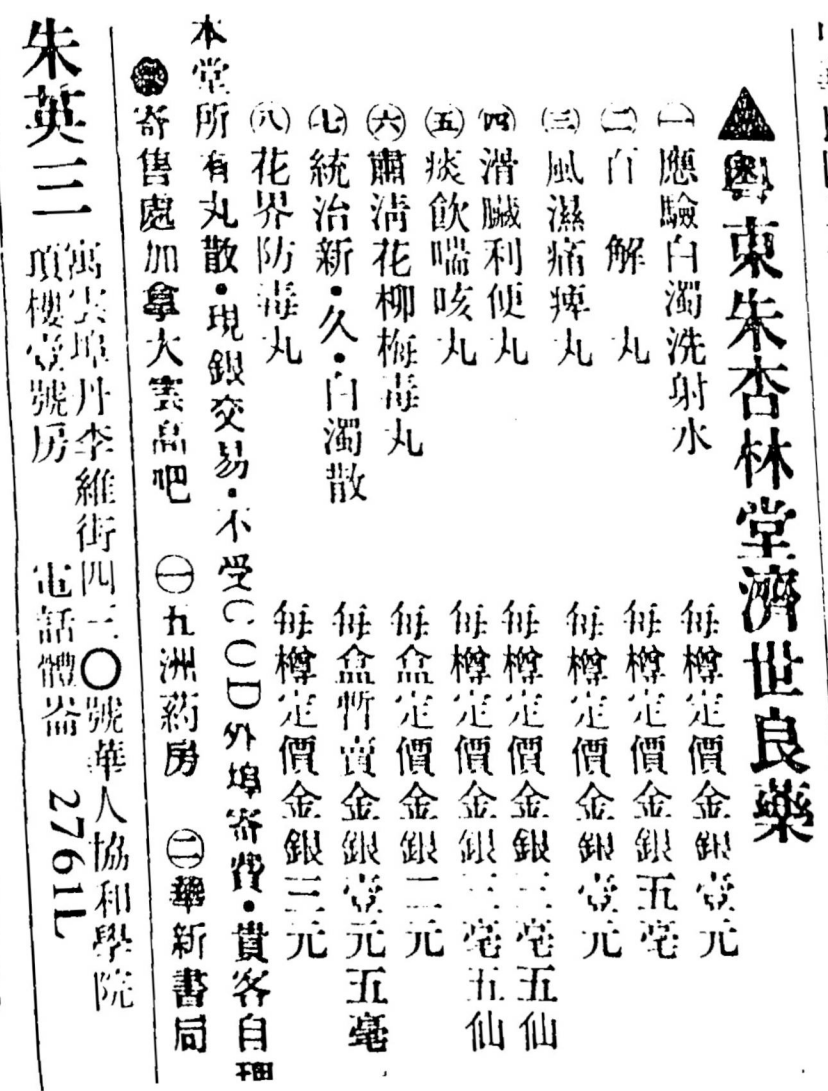 ▲粵東朱杏林堂濟世良藥
㊀應驗白濁洗射水 每樽定價金銀壹元
㊁百解丸 每樽定價金銀五毫
㊂風濕痛痺丸 每樽定價金銀壹元
㊃滑臟利便丸 每樽定價金銀三毫五仙
㊄痰飲喘咳丸 每樽定價金銀三毫五仙
㊅肅淸花柳梅毒丸 每盒定價金銀二元
㊆統治新•久•白濁散 每盒暫賣金銀壹元五毫
㊇花界防毒丸 每樽定價金銀三元
本堂所有丸散•現銀交易•不受COD外埠寄費•貴客自理
寄售處加拿大雲高吧 ㊀五洲葯房 ㊁華新書局
朱英三
寓雲埠丹李維街四三〇號華人協和學院
項樓壹號房 電話體崙 2761L